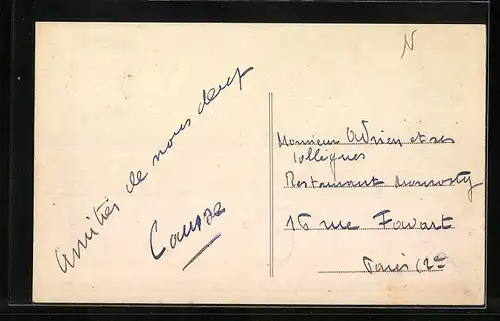 N
Amitiés de nous deux
Causse
Monsieur Adrien et ses
collègues
Restaurant
16 rue Favart
Paris (2e